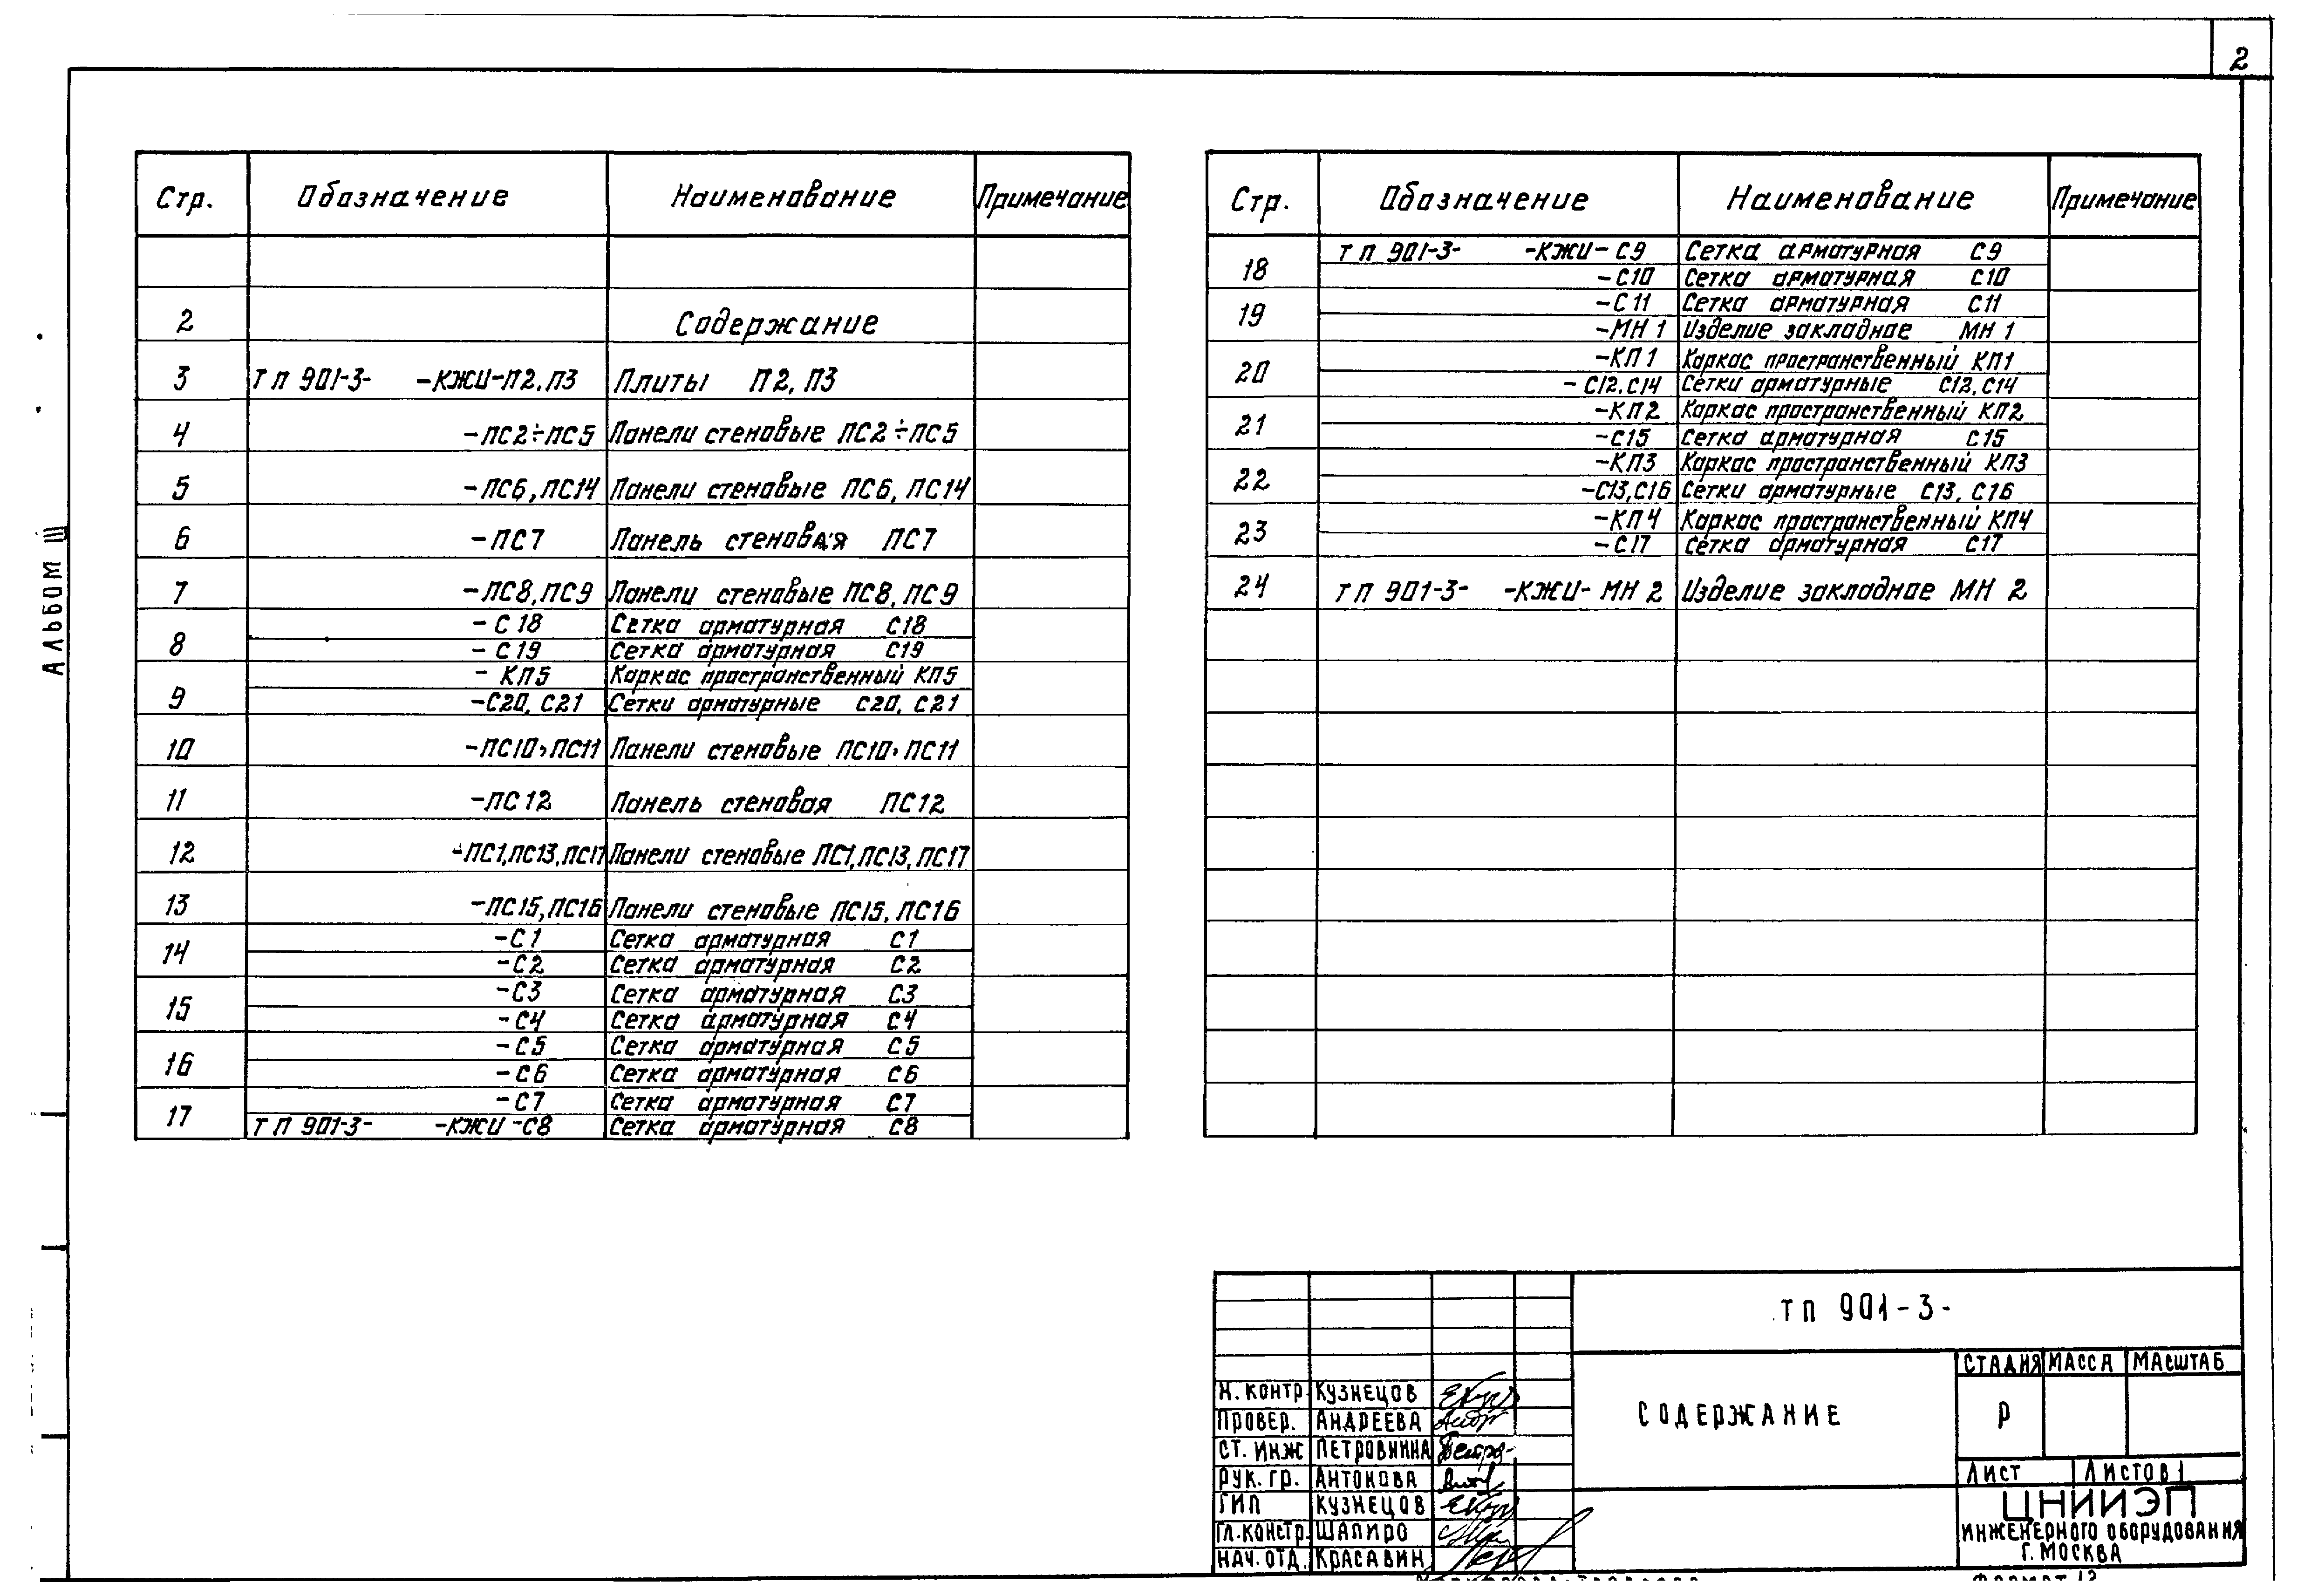 2
Альбом III
Стр. Обозначение Наименование Примечание
2 Содержание
3 ТП 901-3- -КЖИ-П2,П3 Плиты П2, П3
4 -ПС2÷ПС5 Панели стеновые ПС2÷ПС5
5 -ПС6, ПС14 Панели стеновые ПС6, ПС14
6 -ПС7 Панель стеновая ПС7
7 -ПС8, ПС9 Панели стеновые ПС8, ПС9
8 -С18 Сетка арматурная С18
-С19 Сетка арматурная С19
9 -КП5 Каркас пространственный КП5
-С20, С21 Сетки арматурные С20, С21
10 -ПС10, ПС11 Панели стеновые ПС10, ПС11
11 -ПС12 Панель стеновая ПС12
12 -ПС1,ПС13,ПС17 Панели стеновые ПС1,ПС13,ПС17
13 -ПС15,ПС16 Панели стеновые ПС15, ПС16
14 -С1 Сетка арматурная С1
-С2 Сетка арматурная С2
15 -С3 Сетка арматурная С3
-С4 Сетка арматурная С4
16 -С5 Сетка арматурная С5
-С6 Сетка арматурная С6
17 -С7 Сетка арматурная С7
ТП 901-3- -КЖИ-С8 Сетка арматурная С8
Стр. Обозначение Наименование Примечание
18 ТП 901-3- -КЖИ-С9 Сетка арматурная С9
-С10 Сетка арматурная С10
19 -С11 Сетка арматурная С11
-МН1 Изделие закладное МН1
20 -КП1 Каркас пространственный КП1
-С12,С14 Сетки арматурные С12, С14
21 -КП2 Каркас пространственный КП2
-С15 Сетка арматурная С15
22 -КП3 Каркас пространственный КП3
-С13,С16 Сетки арматурные С13, С16
23 -КП4 Каркас пространственный КП4
-С17 Сетка арматурная С17
24 ТП 901-3- -КЖИ-МН2 Изделие закладное МН2
ТП 901-3-
СТАДИЯ МАССА МАСШТАБ
Н. КОНТР КУЗНЕЦОВ
ПРОВЕР. АНДРЕЕВА
СОДЕРЖАНИЕ Р
СТ. ИНЖ ПЕТРОВНИНА
РУК. ГР. АНТОНОВА
ЛИСТ ЛИСТОВ 1
ГИП КУЗНЕЦОВ
ЦНИИЭП
ГЛ.КОНСТР. ШАПИРО
ИНЖЕНЕРНОГО ОБОРУДОВАНИЯ
НАЧ. ОТД. КРАСАВИН
Г. МОСКВА